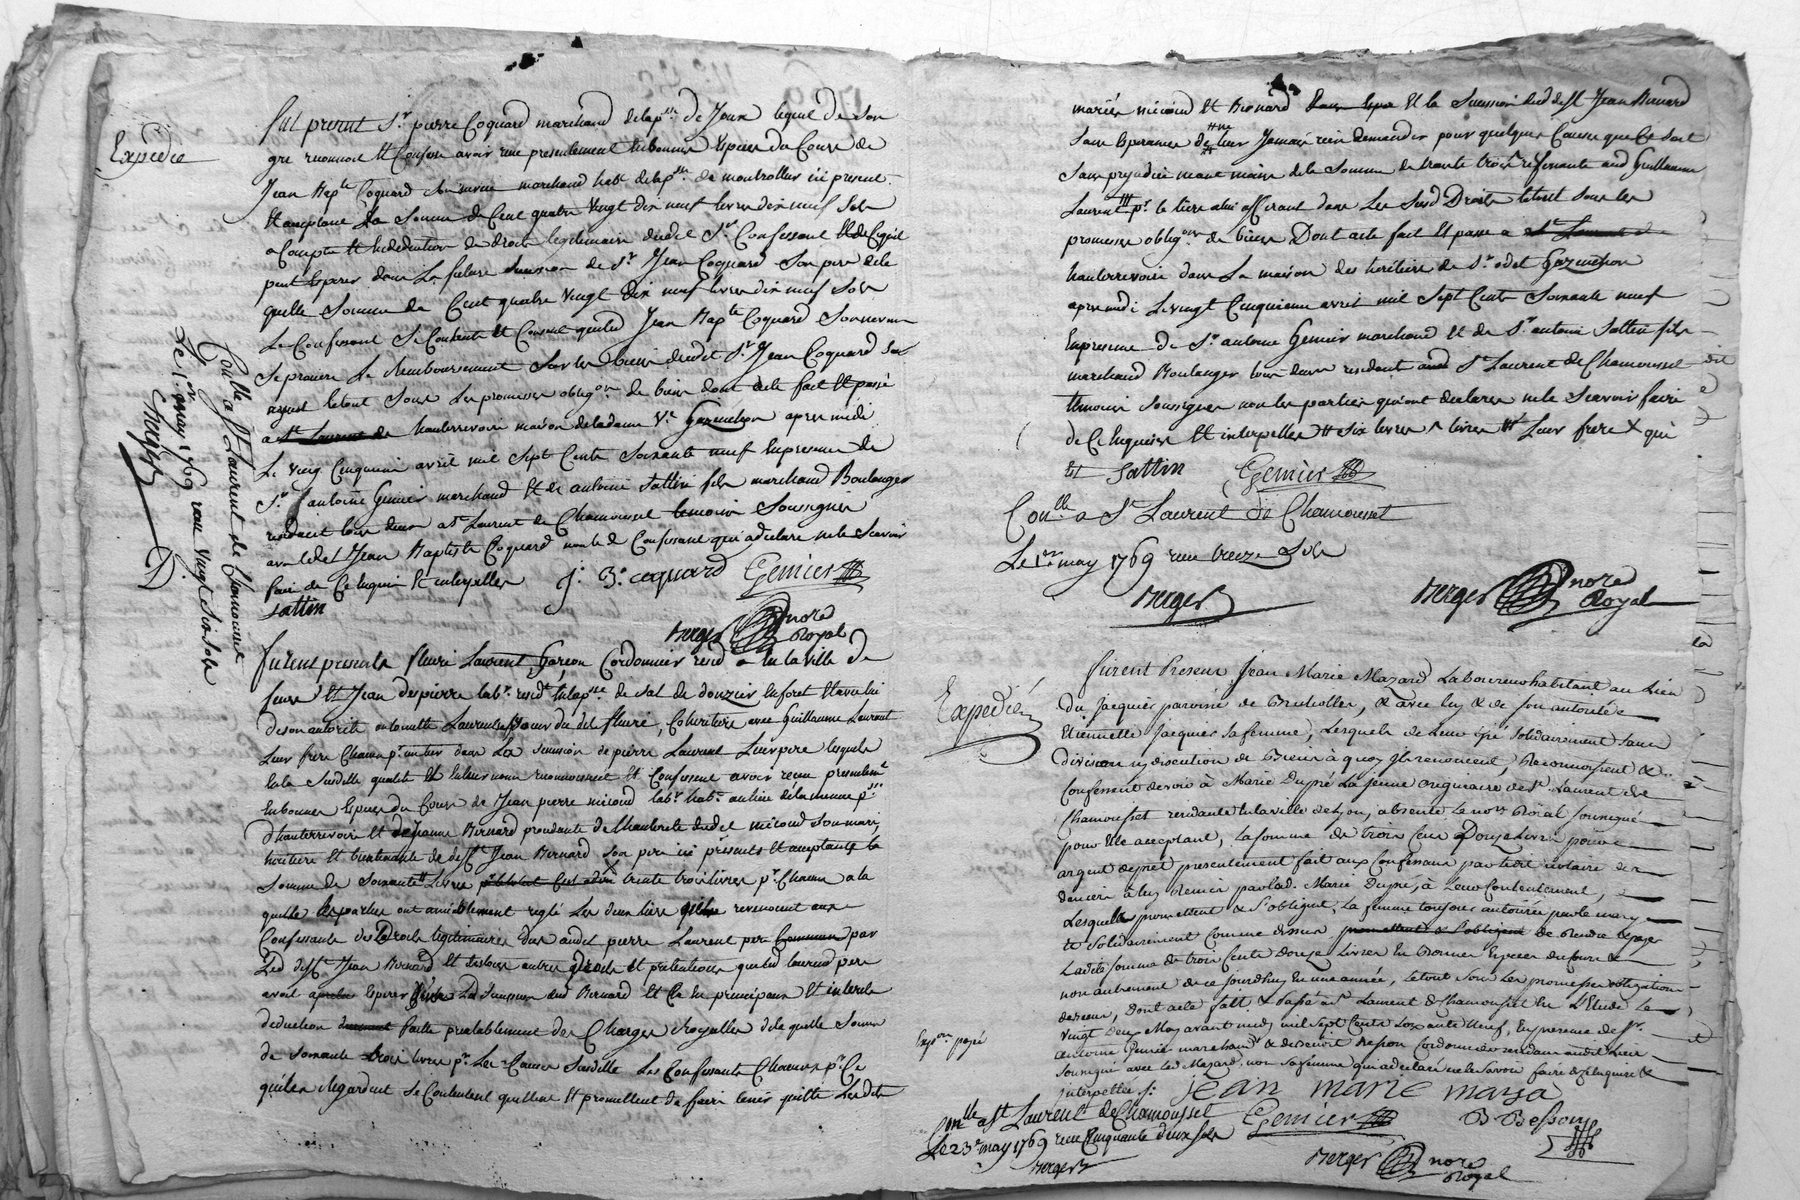 Expediée
fut present Sr pierre Coquard marchand de la psse de Joux lequel de son
gre reconnoit et Confesse avoir recu presentement en bonnes Especes du Cours de
Jean Bapte Coquard Son frere marchand habt de la psse de montrottier ici present
et acceptant la Somme de Cent quatre vingt dix neuf livres dix neuf Sols
a Compte et en deduction de droits legitimaires dudit Sr Confessant
peut Esperer dans la future Succession de Sr Jean Coquard Son pere de la
quelle Somme de Cent quatre vingt dix neuf livres dix neuf Sols
Le Confessant Se Contente et Consent que led Jean Bapte Coquard Son frere
Se procure Le Remboursement Sur les biens dudit Sr Jean Coquard Son
le tout Sous Les promesses obligons de biens dont acte fait et passé
a St Laurent de hauterivoire maison de la dame Ve Gazanchon apres midi
Le vingt Cinquieme avril mil Sept Cents Soixante neuf En presence de
Sr antoine Gemier marchand et de antoine Sattin fils marchand Boulanger
residant tous deux a St Laurent de Chamousset temoins Soussignés
avec ledt Jean Baptiste Coquard non le d Confessant qui a declaré ne le Scavoir
faire de Ce Enquis et interpellés J. B. coquard Gemier
Sattin
Berger nore Royal
Conlle a St Laurent de Chamousset
Le 1er may 1769 recu vingt Six Sols
Berger
D.
furent presents fleuri Laurent Garcon Cordonnier resid a en la ville de
feurs et Jean despierre labr residt en la psse de Sal de donzier en foret et avec lui
de son autorité antoinette Laurent Sœur du dit fleuri, Coheritiers avec Guillaume Laurent
Leur frere Chacun pr un tiers dans La Succession de pierre Laurent Leur pere lesquels
En la Susditte qualité et En leur nom reconnoissent et Confessent avoir recu presentemt
En bonnes Especes du Cours de Jean pierre miciaud labr habt au lieu de la meme psse
d'hauterivoire et de Jeanne Bernard procedante de l'hauthorité dudit miciaud Son mari,
heritiere et bientenante de defft Jean Bernard Son pere ici presents et acceptants la
Somme de Soixante Livres trente trois livres pr Chacun a la
quelle les parties ont amiablement reglé Les deux tiers qui revenoient aux
Confessants des Droits legitimaires dus audit pierre Laurent par
Led defft Jean Bernard et tes tous autres droits et pretentions que led laurent pere
avoit Esperer dans La Succession dud Bernard et Ce En principaux et interets
deduction faite prealablement des Charges Royalles de la quelle Somme
de Soixante trois livres pr Les Causes Susditte Les Confessants Chacun pr Ce
qui les regardent Se Contentent quittent et promettent de faire tenir quitte Lesdits
mariés miciaud et Bernard Envers tous et la Succession dud defft Jean Bernard
Sans Esperance de leur Jamais rien demander pour quelque Cause que Ce Soit
Sans prejudice neant moins de la Somme de trente trois reservante aud Guillaume
Laurent pr le tiers a lui afferant dans Les Susd Droits le tout Sous les
promesses obligons de biens Dont acte fait et passé a
hauterivoire dans La maison des heritiers de Sr odet Gazanchon
apres midi Le vingt Cinquieme avril mil Sept Cents Soixante neuf
En presence de Sr antoine Gemier marchand et de Sr antoine Sattin fils
marchand Boulanger tous deux residants aud St Laurent de Chamousset
temoins Soussignés non les parties qui ont declarés ne le Scavoir faire
de Ce Enquises et interpellés Six livres livres Leur frere qui
Sattin Gemier
Conlle a St Laurent de Chamousset
Le 1er may 1769 recu treize Sols
Berger
Berger nore Royal
Expediée
furent Presens Jean Marie Mazard Laboureur habitant au Lieu
du Jacquiés paroisse de Brullolles, & avec luy & de son autorité
Etiennette Jacquier sa femme, Lesquels de Leur Gré solidairement sans
division ny discution de Biens à quoy ils renoncent, Reconnoissent &
Confessent devoir à Marie Dupré La jeune originaire de St Laurent de
Chamousset residante en la ville de Lyon, absente Le nore Royal soussigné
pour Elle acceptant, La somme de trois Cent Douze Livres pour
argent de pret presentement fait aux Confessans par
deniers à luy remis par lad. Marie Dupré, à Leur Contentement,
Lesquels promettent & s'obligent, La femme toujours autorisée par le mary
& solidairement Comme dessus de Rendre & payer
Ladite somme de trois Cents douze Livres En Bonnes Especes du Cours &
non autrement de ce jourdhuy En une année, Le tout sous Les promesses obligations
de biens, dont acte fait & Passé a St Laurent de Chamousset En L'Etude Le
Vingt deux May avant midy mil sept Cents soixante Neuf, En presence de Sr
antoine Gemier marchand & de Benoit Besson Cordonnier residans audit Lieu
soussigné avec led Mazard, non sa femme qui a declaré ne le savoir faire de ce Enquise &
interpellée s.
jean marie maza
Gemier
B Besson
Conlle a St Laurent de Chamousset
Le 23e may 1769 recu Cinquante deux Sols
Berger
Berger nore Royal